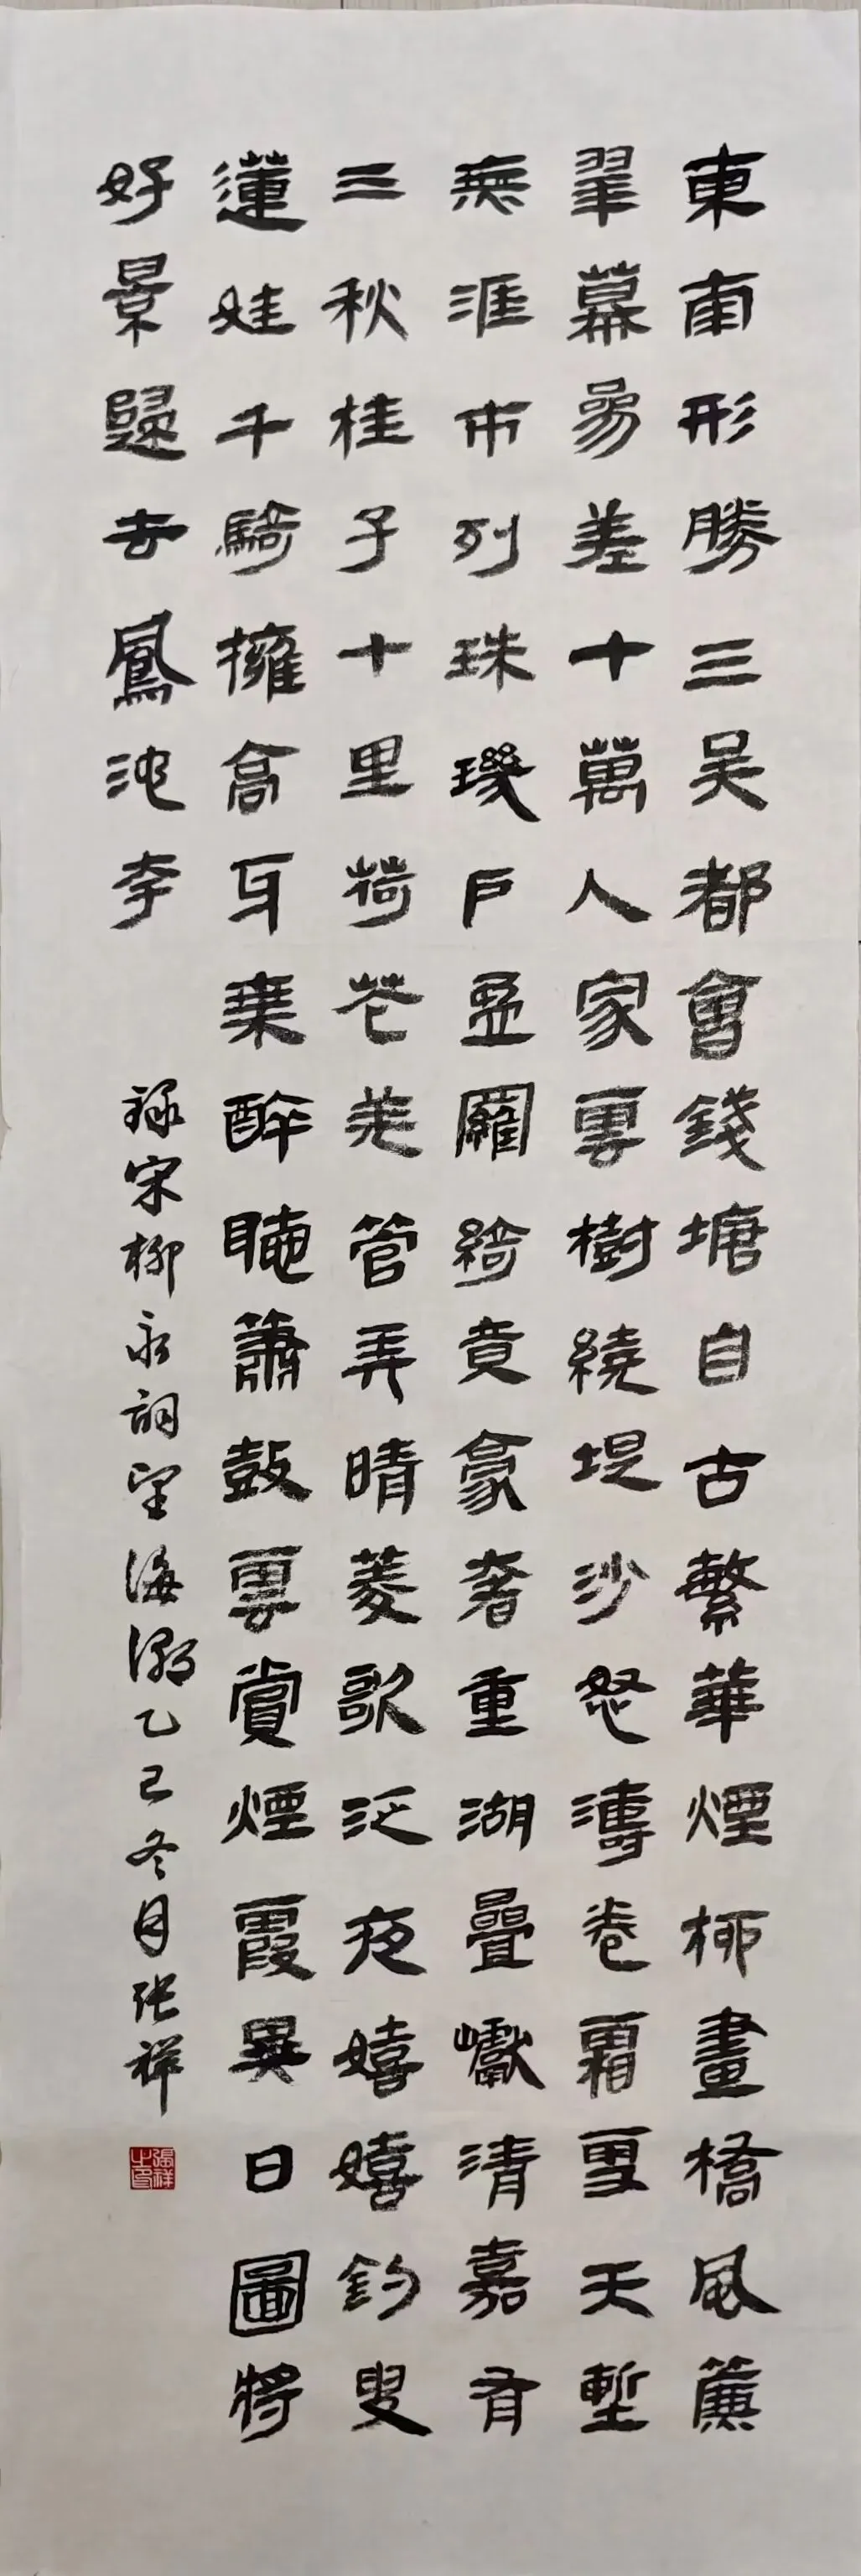 東南形勝三吳都會錢塘自古繁華煙柳畫橋風簾
翠幕參差十萬人家雲樹繞堤沙怒濤卷霜雪天塹
無涯市列珠璣戶盈羅綺竟豪奢重湖疊巘清嘉有
三秋桂子十里荷花羌管弄晴菱歌泛夜嬉嬉釣叟
蓮娃千騎擁高牙乘醉聽簫鼓雲賞煙霞異日圖將
好景歸去鳳池夸
録宋柳永詞望海潮乙巳冬月張祥
張祥之印